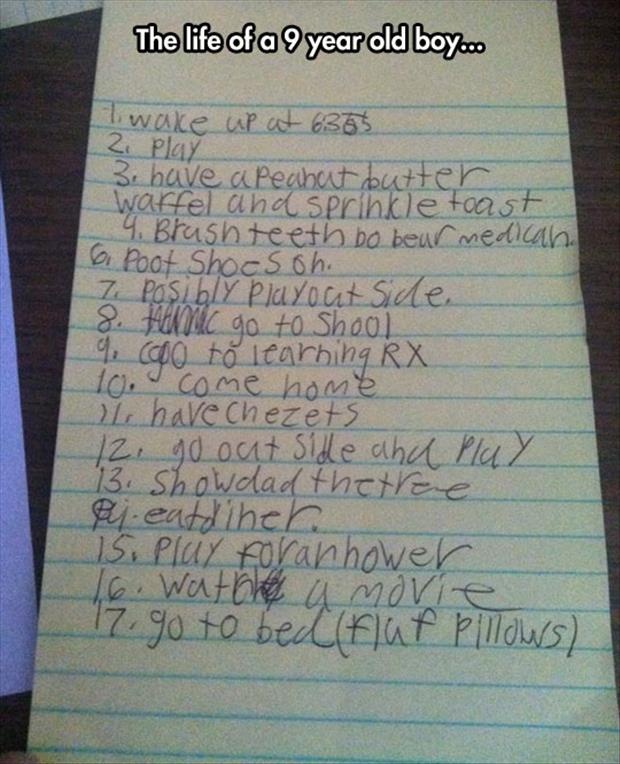 The life of a 9 year old boy...
1. wake up at 635
2. Play
3. have a Peanut butter
waffel and sprinkle toast
4. Brush teeth bo beur medican.
6. Poot Shoes oh.
7. Posibly Play out Side.
8. go to Shool
9. go to learning RX
10. come home
11. have chezets
12. go out Side and Play
13. Show dad the tree
eat diner.
15. Play for an hower
16. watch a movie
17. go to bed (fluf Pillows)